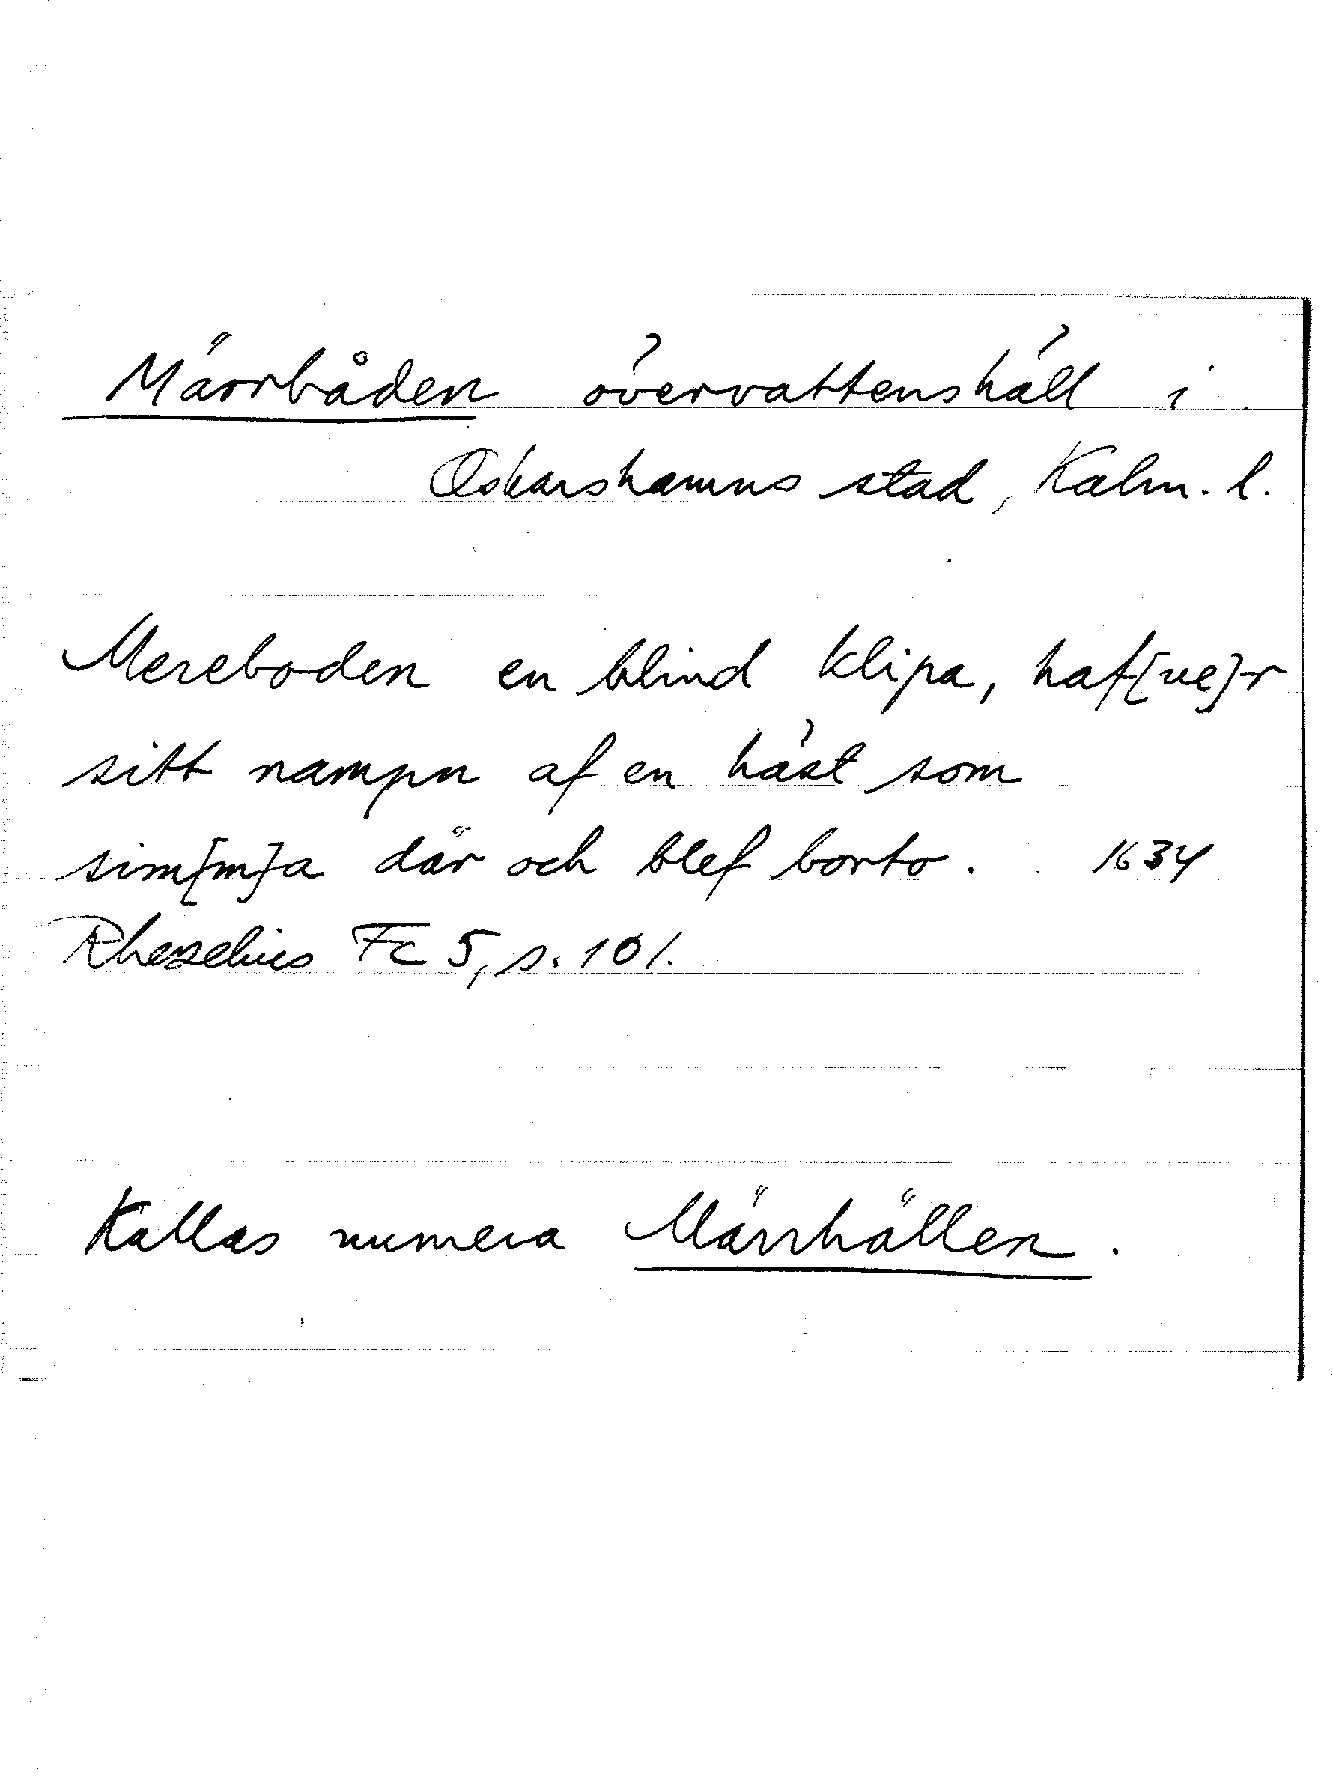 Märrbåden övervattenshäll i
Oskarshamns stad, Kalm. l.
Mereboden en blind klipa, haf[ve]r
sitt nampn af en häst som
sim[m]a där och blef borto. 1634
Rhezelius Fc 5, s. 101.
Kallas numera Märrhällen.